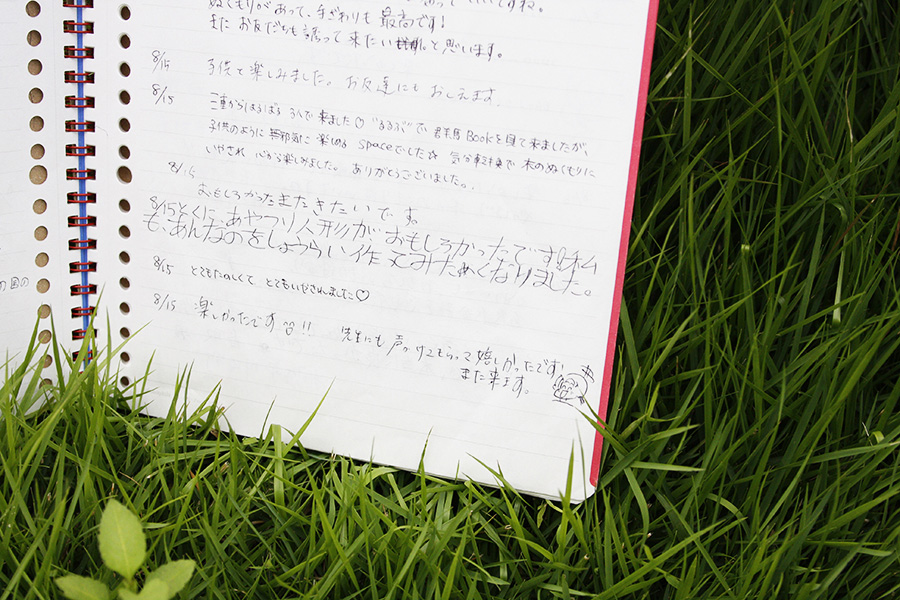 ぬくもりがあって、手ざわりも最高です!
また お友だちも誘って 来たい と思います。
8/15 子供で楽しみました。お友達にも おしえます
8/15 三重からはるばる 3人で 来ました♡ “るるぶ”で 群馬 Bookを見て来ましたが、
子供のように 無邪気に 楽しめる spaceでした☆ 気分転換で 木のぬくもりに
いやされ 心から楽しみました。 ありがとうございました。
8/15
おもしろかった またきたいです
8/15 とくに、あやつり人形が おもしろかったです。私
も、あんなのをしょうらい作ってみたくなりました。
8/15 とてもたのしくて とてもいやされました♡
8/15 楽しかったです !! 先生にも 声かけてもらって 嬉しかったです!
また来ます。
の国の